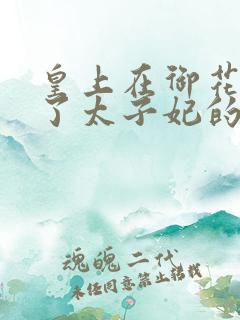 皇上在御花
了太子妃的
魂魄二代
未经同意禁止转载